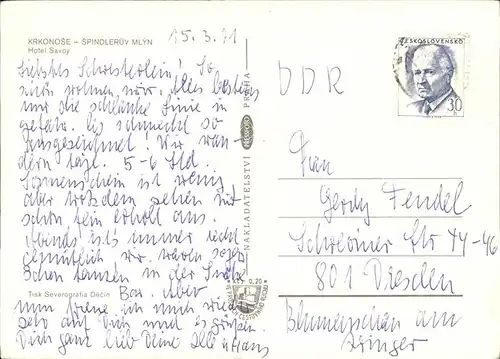 KRKONOŠE – ŠPINDLERŮV MLÝN
Hotel Savoy
15.3.71
Liebstes Schwesterlein! So
schön wohnen wir. Alles bestens
nur die schlanke Linie in
Gefahr. Es schmeckt so
ausgezeichnet! Wir wan-
dern tägl. 5-6 Std.
Sonnenschein ist wenig
aber trotzdem sehen wir
schon fein erholt aus.
Abends ist's immer recht
gemütlich wir waren
schon tanzen in der
Bar. Aber
nun freue ich mich wieder
sehr auf Dich und es grüßen
Dich ganz lieb Deine Hans
Tisk Severografia Děčín
NAKLADATELSTVÍ
PRAHA
Kčs 0,20
ČESKOSLOVENSKO
30
h
DDR
Frau
Gerdy Fendel
Str 44-46
801 Dresden
Blumenschau am